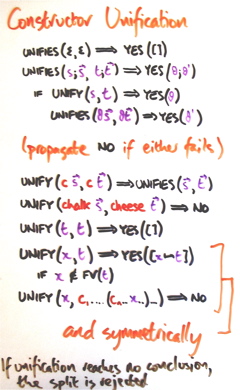 Constructor Unification
UNIFIES(ε,ε) ⟹ YES([])
UNIFIES(s;s⃗, t;t⃗) ⟹ YES(θ;θ')
IF UNIFY(s,t) ⟹ YES(θ)
UNIFIES(θs⃗, θt⃗) ⟹ YES(θ')
(propagate NO if either fails)
UNIFY(c s⃗, c t⃗) ⟹ UNIFIES(s⃗, t⃗)
UNIFY(chalk s⃗, cheese t⃗) ⟹ NO
UNIFY(t,t) ⟹ YES([])
UNIFY(x,t) ⟹ YES([x↦t])
IF x ∉ FV(t)
UNIFY(x, c₁...(cₙ...x..)..) ⟹ NO
and symmetrically
If unification reaches no conclusion,
the split is rejected